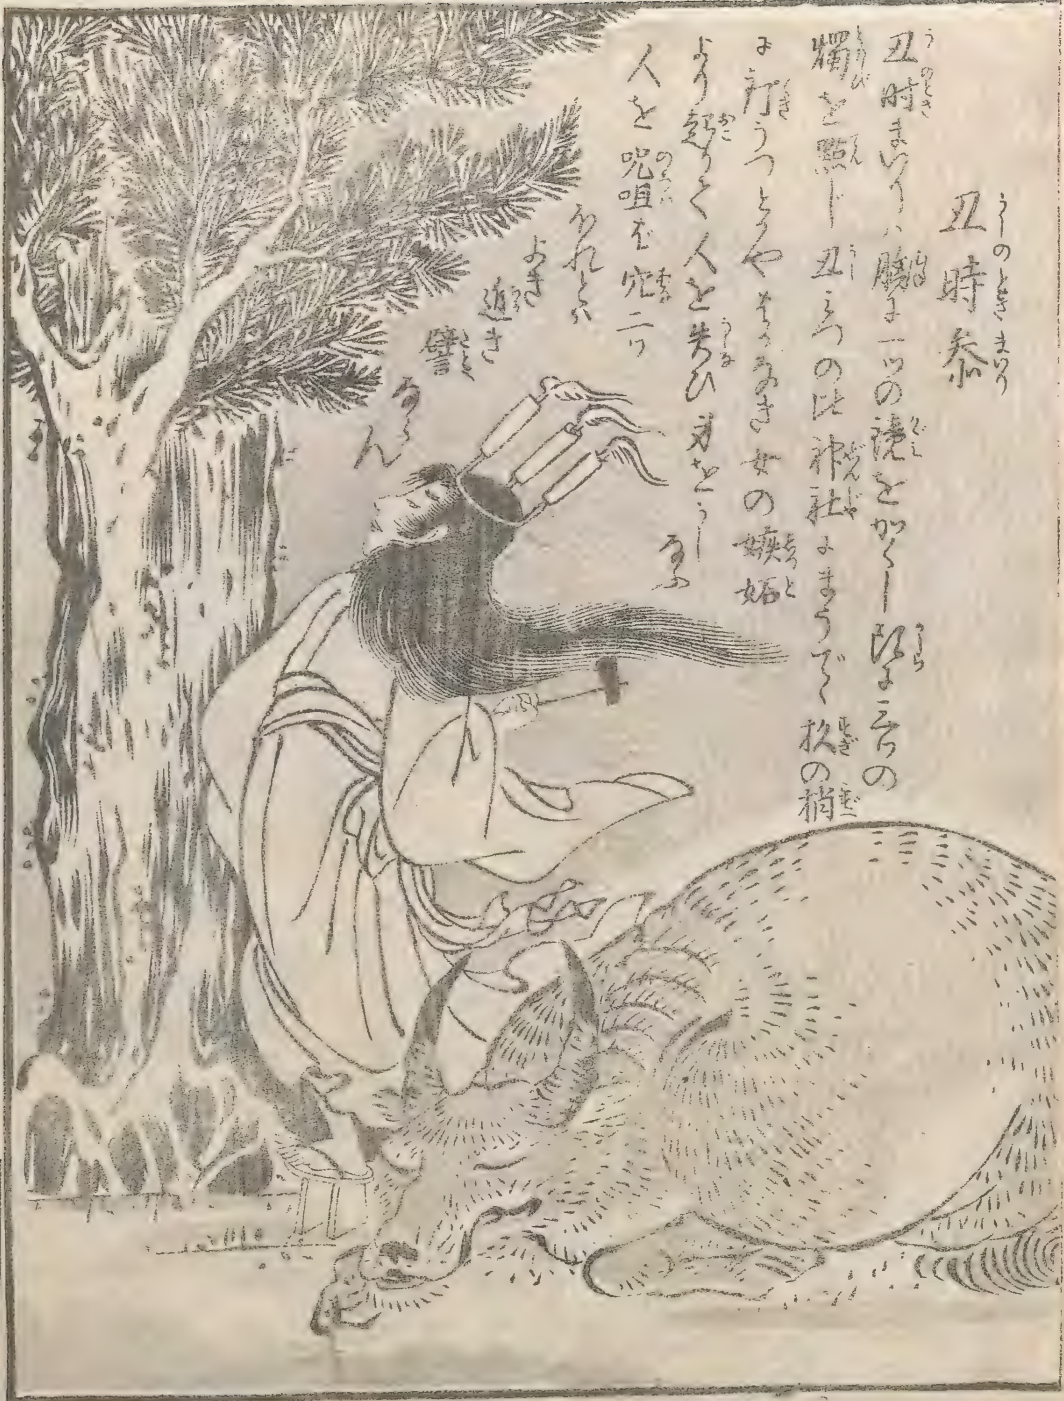 丑時参
うしのときまいり
丑時まいりハ胸に一ツの鏡をかくし頭に三つの
燭を點じ丑みつの比神社にまうでゝ杉の梢
に釘うつとかやはかなき女の嫉妬
より起りて人を失ひ身をうしなふ
人を呪咀ば穴二ツ
ほれとハ
よき
近き
譬
ならん